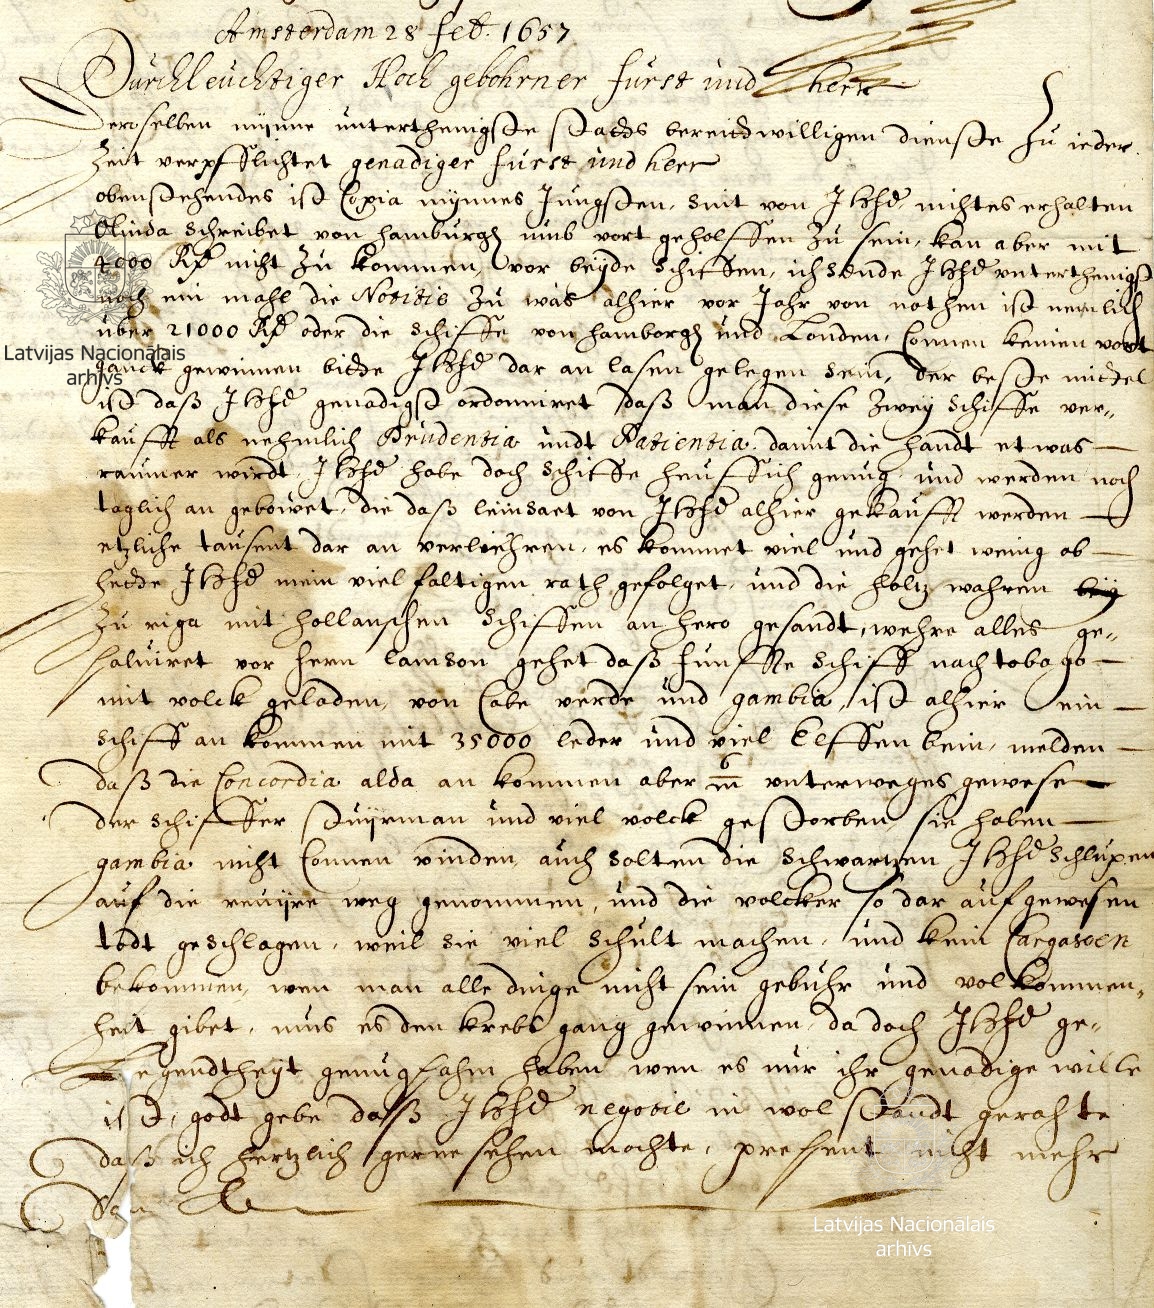 Amsterdam 28 feb. 1657
Durchleuchtiger Hoch gebohrner furst und herr
deroselben mynne unterthenigste stedds bereiddwilligen dienste zu ieder
Zeit verpfflichtet genadiger furst und herr
obenstehendes ist Copia mynnes Jungsten, sint von JHhd nichtes erhalten
Olinda schreibet von hamburgh umb vort geholffen zu sein, kan aber mit
4000 Rd nicht zu kommen, vor beyde schiffen, ich sende JHhd unterthenigst
noch ein mahl die Notitie zu was alhier vor Jahr von nothen ist nemlich
über 21000 Rd oder die schiffe von hamborgh und Londen, Connen keinen vort
ganck gewinnen bidde JHhd dar an lasen gelegen sein, der beste middel
ist daß JHhd genadigst ordonniret daß man diese zwey schiffe ver„
kaufft als nehmlich Prudentia undt Patientia, damit die handt etwas
raumer wirdt, JHhd habe doch schiffe heuffich genug und werden noch
taglich an gebowet, die daß leinsaet von JHhd alhier gekaufft werden
etzliche tausent dar an verliehren, es kommet viel und gehet wening ob
hedde JHhd mein vielfaltigen rath gefolget, und die holtz wahren
zu riga mit hollanschen schiffen an hero gesandt, wehre alles ge„
salviret vor hern lamson gehet daß funffte schiff nach tobago
mit volck geladen, von Cabe verde und gambia, ist alhier ein
schiff an kommen mit 35000 leder und viel Elffenbein, melden
daß die Concordia alda an kommen aber 6 m unterweges gewese
der schiffer stuyrman und viel volck gestorben, sie haben
gambia nicht Connen vinden, auch solten die schwartzen JHhd schlupen
auf die reviyre weg genommen, und die volcker so dar auf gewesen
todt geschlagen, weil sie viel schult machen, und kein Cargasoen
bekommen, wen man alle dinge nicht sein gebuhr und volkommen„
heit gibet, mus es den krebs gang gewinnen, da doch JHhd ge„
legendtheyt genugsahm haben wen es nur ihr genadige wille
ist, godt gebe daß JHhd negotie in wolstandt gerahte
daß ich hertzlich gerne sehen mochte, present nicht mehr
Latvijas Nacionālais
arhīvs
Latvijas Nacionālais
arhīvs